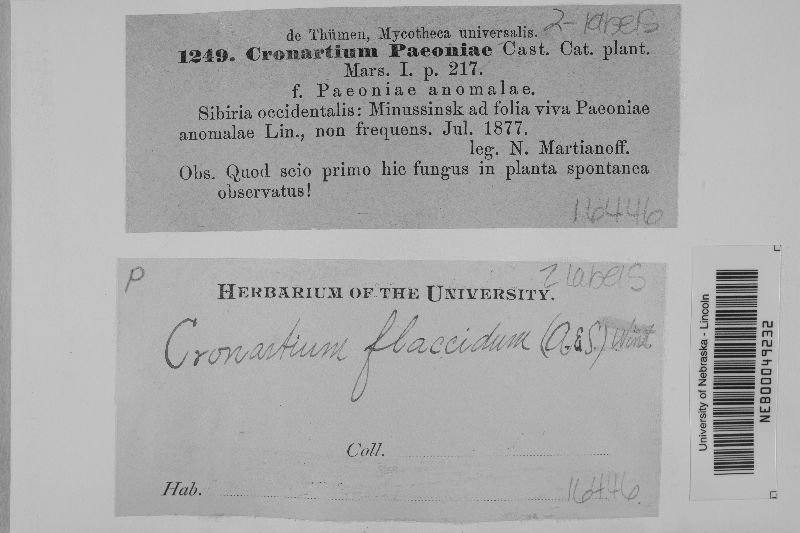 2 labels
de Thümen, Mycotheca universalis.
1249. Cronartium Paeoniae Cast. Cat. plant.
Mars. I. p. 217.
f. Paeoniae anomalae.
Sibiria occidentalis: Minussinsk ad folia viva Paeoniae
anomalae Lin., non frequens. Jul. 1877.
leg. N. Martianoff.
Obs. Quod scio primo hic fungus in planta spontanea
observatus!
16446
P
2 labels
HERBARIUM OF THE UNIVERSITY.
Cronartium flaccidum (A.&S.) Wint
Coll.
Hab.
16446
University of Nebraska - Lincoln
NEB00049232